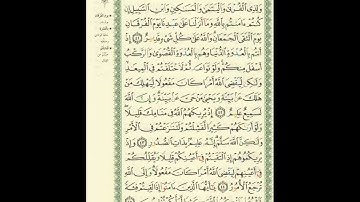 وَلِذِى ٱلْقُرْبَىٰ وَٱلْيَتَٰمَىٰ وَٱلْمَسَٰكِينِ وَٱبْنِ ٱلسَّبِيلِ إِن
كُنتُمْ ءَامَنتُم بِٱللَّهِ وَمَآ أَنزَلْنَا عَلَىٰ عَبْدِنَا يَوْمَ ٱلْفُرْقَانِ
يَوْمَ ٱلْتَقَى ٱلْجَمْعَانِ وَٱللَّهُ عَلَىٰ كُلِّ شَىْءٍ قَدِيرٌ
إِذْ أَنتُم بِٱلْعُدْوَةِ ٱلدُّنْيَا وَهُم بِٱلْعُدْوَةِ ٱلْقُصْوَىٰ وَٱلرَّكْبُ
أَسْفَلَ مِنكُمْ وَلَوْ تَوَاعَدتُّمْ لَٱخْتَلَفْتُمْ فِى ٱلْمِيعَٰدِ
وَلَٰكِن لِّيَقْضِىَ ٱللَّهُ أَمْرًا كَانَ مَفْعُولًا لِّيَهْلِكَ مَنْ
هَلَكَ عَنۢ بَيِّنَةٍ وَيَحْيَىٰ مَنْ حَىَّ عَنۢ بَيِّنَةٍ وَإِنَّ ٱللَّهَ
لَسَمِيعٌ عَلِيمٌ إِذْ يُرِيكَهُمُ ٱللَّهُ فِى مَنَامِكَ قَلِيلًا
وَلَوْ أَرَىٰكَهُمْ كَثِيرًا لَّفَشِلْتُمْ وَلَتَنَٰزَعْتُمْ فِى ٱلْأَمْرِ
وَلَٰكِنَّ ٱللَّهَ سَلَّمَ إِنَّهُۥ عَلِيمٌۢ بِذَاتِ ٱلصُّدُورِ وَإِذْ
يُرِيكُمُوهُمْ إِذِ ٱلْتَقَيْتُمْ فِىٓ أَعْيُنِكُمْ قَلِيلًا وَيُقَلِّلُكُمْ
فِىٓ أَعْيُنِهِمْ لِيَقْضِىَ ٱللَّهُ أَمْرًا كَانَ مَفْعُولًا وَإِلَى ٱللَّهِ
تُرْجَعُ ٱلْأُمُورُ يَٰٓأَيُّهَا ٱلَّذِينَ ءَامَنُوٓا۟ إِذَا لَقِيتُمْ فِئَةً